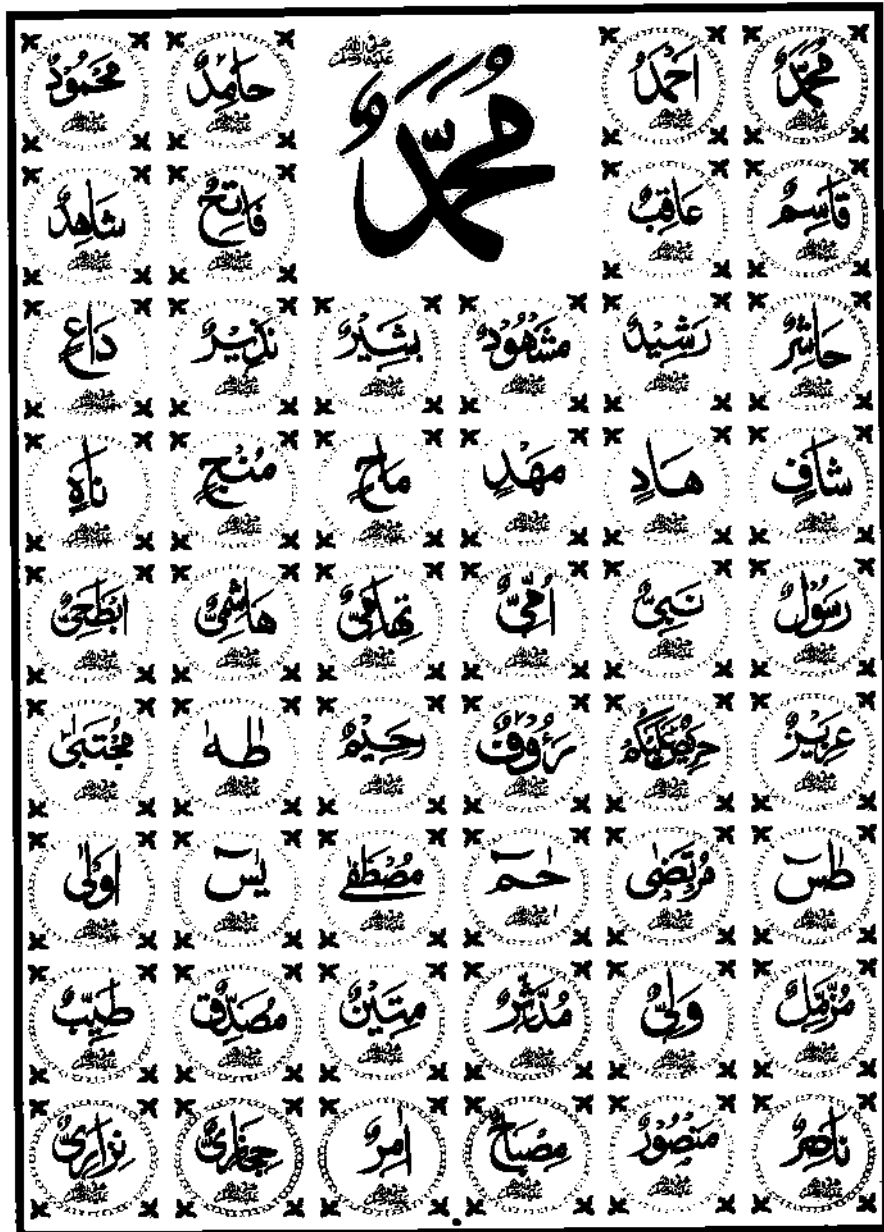 مُحَمَّدٌ ﷺ
مُحَمَّدٌ ﷺ اَحْمَدُ ﷺ حَامِدٌ ﷺ مَحْمُوْدٌ ﷺ
قَاسِمٌ ﷺ عَاقِبٌ ﷺ فَاتِحٌ ﷺ شَاهِدٌ ﷺ
حَاشِرٌ ﷺ رَشِيْدٌ ﷺ مَشْهُوْدٌ ﷺ بَشِيْرٌ ﷺ نَذِيْرٌ ﷺ دَاعٍ ﷺ
شَافٍ ﷺ هَادٍ ﷺ مَهْدٍ ﷺ مَاحٍ ﷺ مُنْجٍ ﷺ نَاهٍ ﷺ
رَسُوْلٌ ﷺ نَبِيٌّ ﷺ اُمِّيٌّ ﷺ تِهَامِيٌّ ﷺ هَاشِمِيٌّ ﷺ اَبْطَحِيٌّ ﷺ
عَزِيْزٌ ﷺ حَرِيْصٌ عَلَيْكُمْ ﷺ رَءُوْفٌ ﷺ رَحِيْمٌ ﷺ طٰهٰ ﷺ مُجْتَبٰى ﷺ
طٰسٓ ﷺ مُرْتَضٰى ﷺ حٰمٓ ﷺ مُصْطَفٰے ﷺ يٰسٓ ﷺ اَوْلٰى ﷺ
مُزَّمِّلٌ ﷺ وَلِيٌّ ﷺ مُدَّثِّرٌ ﷺ مَتِيْنٌ ﷺ مُصَدِّقٌ ﷺ طَيِّبٌ ﷺ
نَاصِرٌ ﷺ مَنْصُوْرٌ ﷺ مِصْبَاحٌ ﷺ اٰمِرٌ ﷺ حِجَازِيٌّ ﷺ نِزَارِيٌّ ﷺ